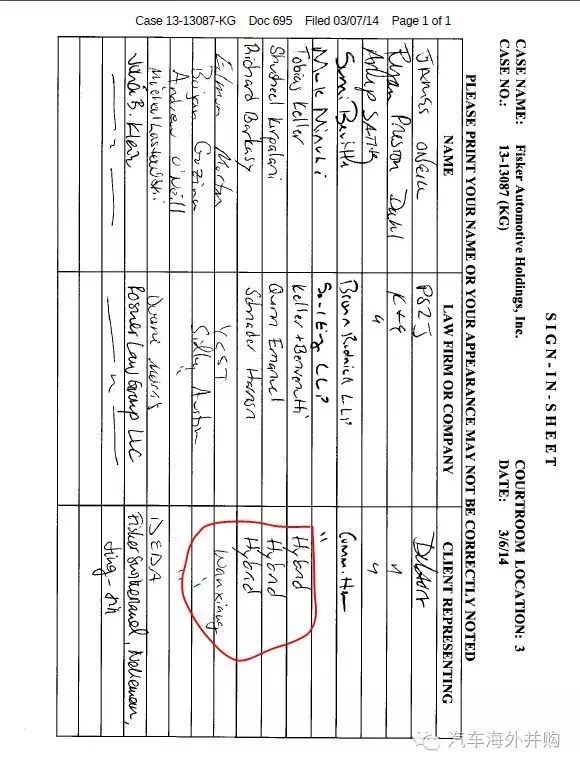 Case 13-13087-KG Doc 695 Filed 03/07/14 Page 1 of 1
SIGN-IN-SHEET
CASE NAME: Fisker Automotive Holdings, Inc. COURTROOM LOCATION: 3
CASE NO.: 13-13087 (KG) DATE: 3/6/14
PLEASE PRINT YOUR NAME OR YOUR APPEARANCE MAY NOT BE CORRECTLY NOTED
NAME LAW FIRM OR COMPANY CLIENT REPRESENTING
James O'Neill PSZJ Debtors
Ryan Preston Dahl K+E "
"  "
Sunni Beville Brown Rudnick LLP Comm.
Mark Minuti Saul Ewing LLP "
Tobias Keller Keller + Benvenutti Hybrid
Shusheel Kirpalani Quinn Emanuel Hybrid
Richard Barkasy Schnader Harrison Hybrid
Edmon Morton YCST Wanxiang
Bojan Guzina Sidley Austin "
Andrew O'Neill " "
Michael Duane Morris DEDA
Julia B. Klein Rosner Law Group LLC Fisker
— " — — " —
汽车海外并购